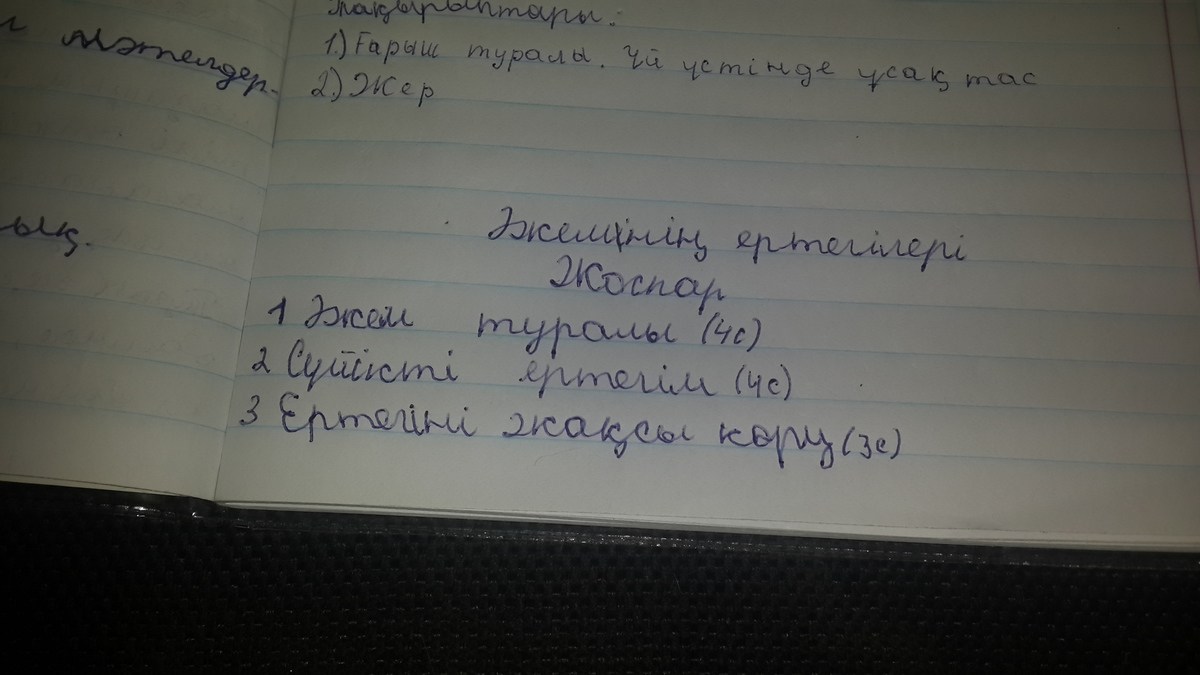 мәтелдер.
ық.
тақырыптары:
1.) Ғарыш туралы. Үй үстінде ұсақ тас
2.) Жер
Әжемінің ертегілері
Жоспар
1 Әжем туралы (4с)
2 Сүйікті ертегім (4с)
3 Ертегіні жақсы көру (3с)